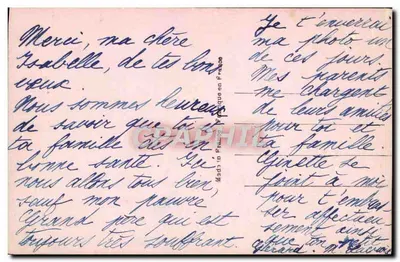 Merci, ma chère
Isabelle, de tes bons
vœux.
Nous sommes heureux
de savoir que toi et
ta famille est en
bonne santé. Ici
nous allons tous bien
sauf mon pauvre
Grand père qui est
toujours très souffrant.
Je t'enverrai
ma photo un
de ces jours.
Mes parents
me chargent
de leurs amitiés
pour toi et
ta famille
Ginette se
joint à moi
pour t'embras
ser affectueu
sement ainsi
que ton
Gérard.
Made in France
en France
CPA